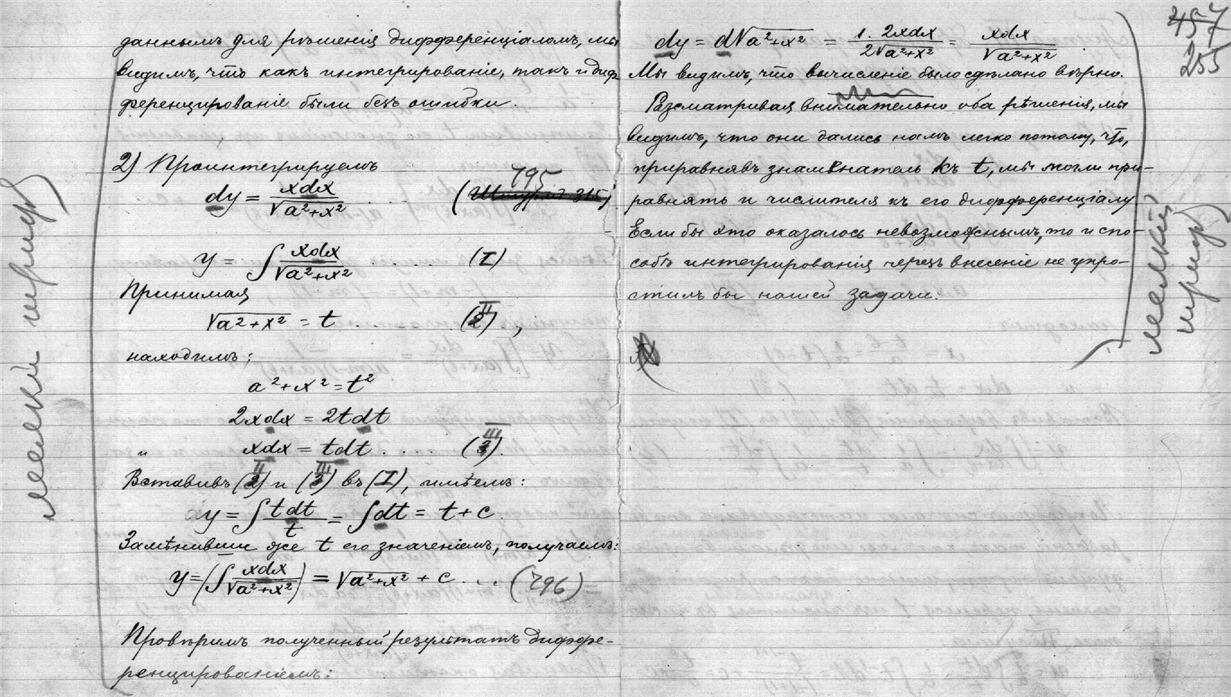 даннымъ для рѣшенія дифференціаломъ, мы
видимъ, что какъ интегрированіе, такъ и диф-
ференцированіе были безъ ошибки.
2) Проинтегрируемъ
dy = xdx / √a²+x² (795)
y = ∫ xdx / √a²+x² (I)
Принимая
√a²+x² = t . . . . (II),
находимъ:
a²+x² = t²
2xdx = 2tdt
" xdx = tdt . . . (III).
Вставивъ (II) и (III) въ (I), имѣемъ:
y = ∫ tdt / t = ∫dt = t + c
Замѣнивши же t его значеніемъ, получаемъ:
y = (∫ xdx / √a²+x²) = √a²+x² + c . . . (796)
Провѣримъ полученный результатъ диффе-
ренцированіемъ:
мелкий шрифт
457
255
dy = d√a²+x² = 1. 2xdx / 2√a²+x² = xdx / √a²+x²
Мы видимъ, что вычисленіе было сдѣлано вѣрно.
Разсматривая внимательно оба рѣшенія, мы
видимъ, что они дались намъ легко потому, что,
приравнявъ знаменатель къ t, мы могли при-
равнять и числителя къ его дифференціалу
Если бы это оказалось невозможнымъ, то и спо-
собъ интегрированія черезъ внесеніе не упро-
стилъ бы нашей задачи.
мелкий
шрифт